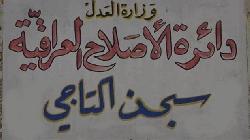 وزارة العدل
دائرة الأصلاح العراقية
سجن التاجي